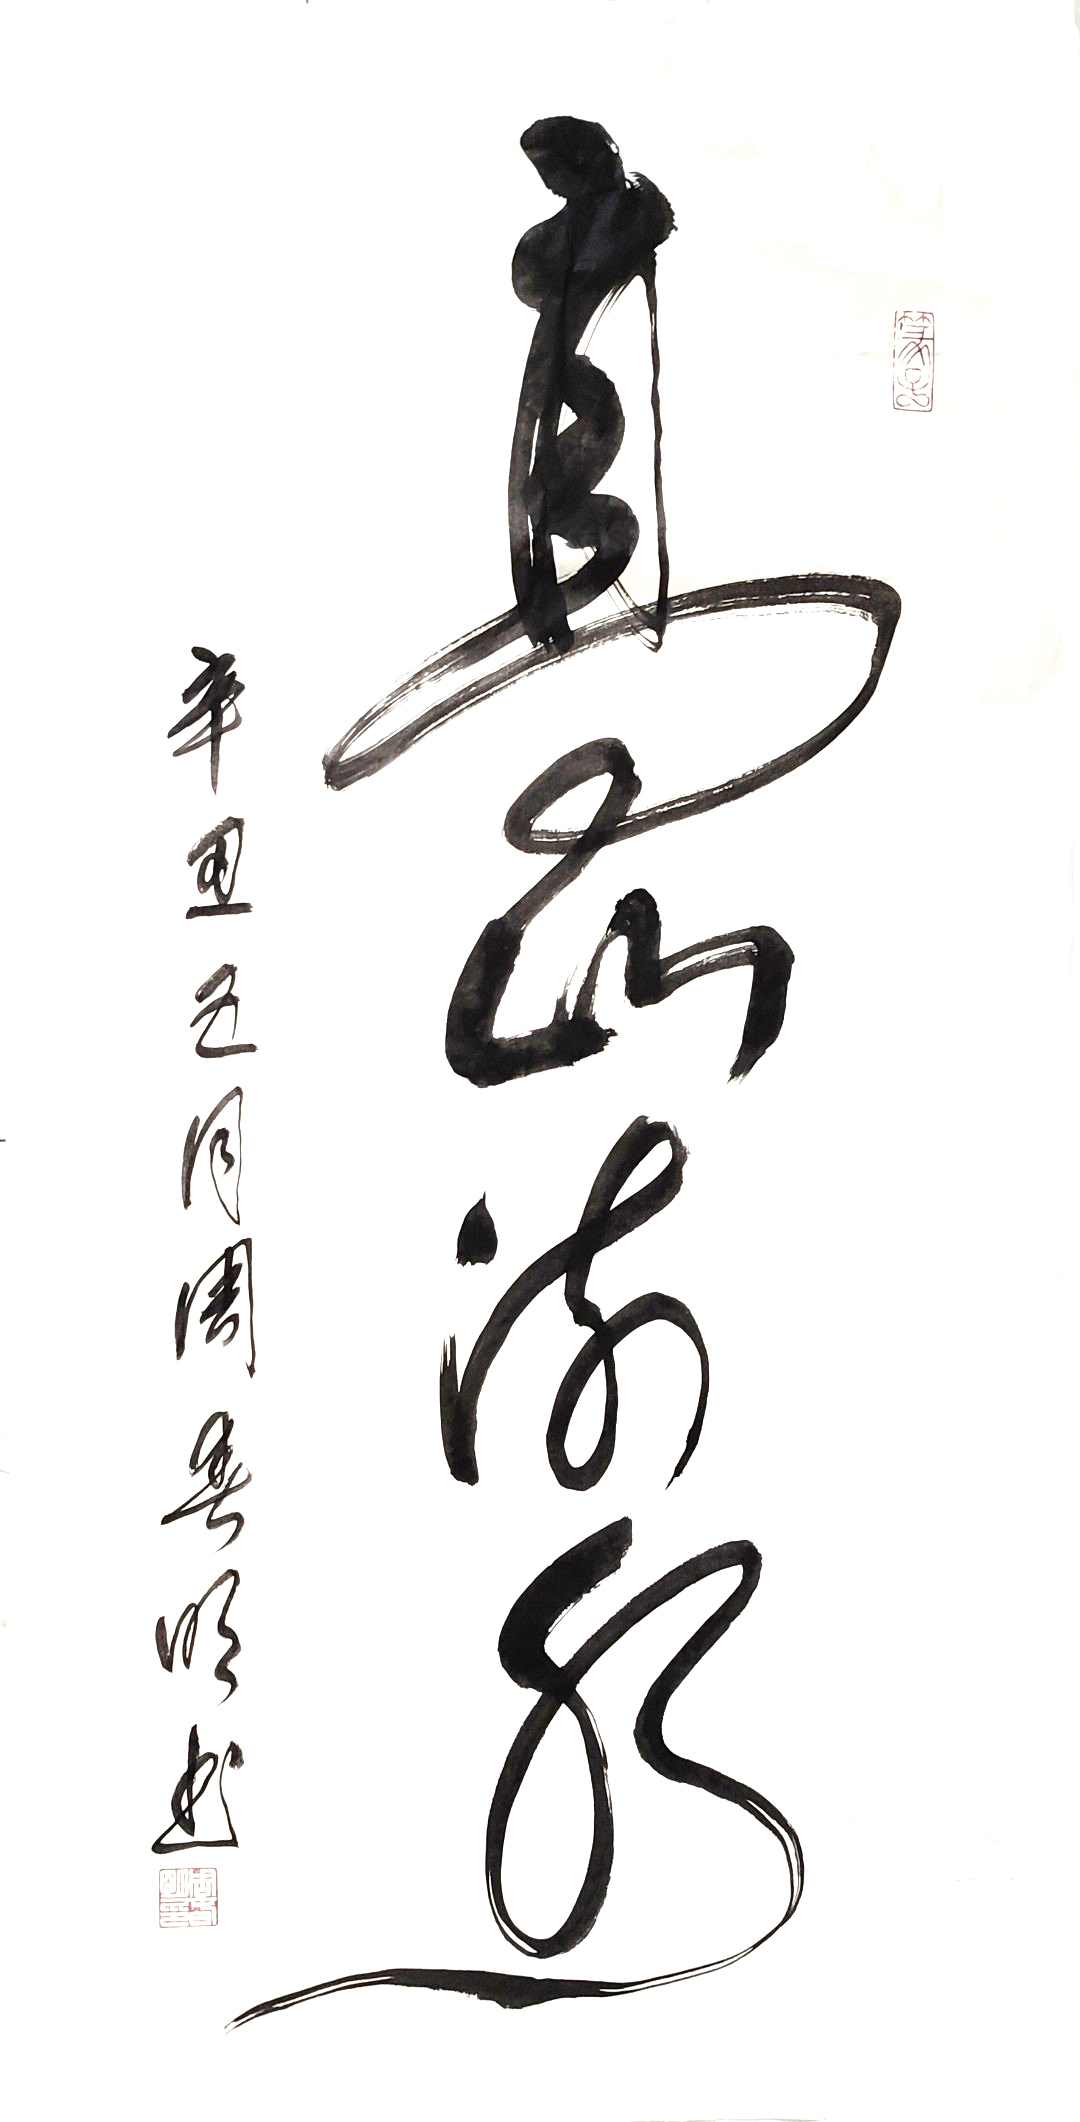 高山流水
辛丑五月周春明书